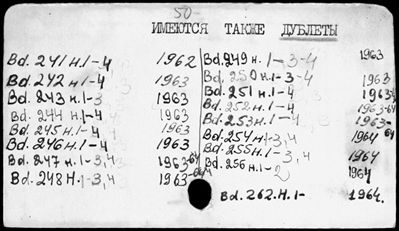 50-
ИМЕЮТСЯ ТАКЖЕ ДУБЛЕТЫ
Bd. 241 н.1-4 1962
Bd. 242 н.1-4 1963
Bd. 243 н.1-3 1963
Bd. 244 н.1-4 1963
Bd. 245 н.1-4 1963
Bd. 246 н.1-4 1963
Bd. 247 н.1-3,4 1963-64
Bd. 248 н.1-3,4 1963-64
Bd. 249 н.1-3-4 1963
Bd. 250 н.1-3-4 1963
Bd. 251 н.1-4 1963
Bd. 252 н.1-4 1963-64
Bd. 253 н.1-4 1963-64
Bd. 254 н.3,4 1964
Bd. 255 н.1-3,4 1964
Bd. 256 н.1-2 1964
Bd. 262. Н.1- 1964.